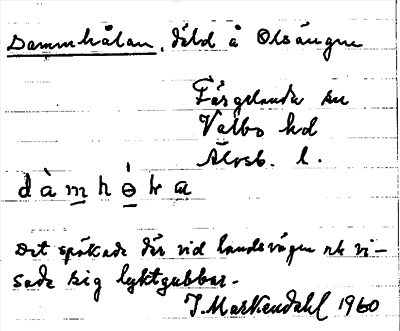 Dammhålan, däld å Olsängen
Färgelanda sn
Valbo hd
Älvsb. l.
dàmhɵ̀lα
Det spökade där vid landsvägen ok vi-
sade sig lyktgubbar.
J. Markendahl 1960